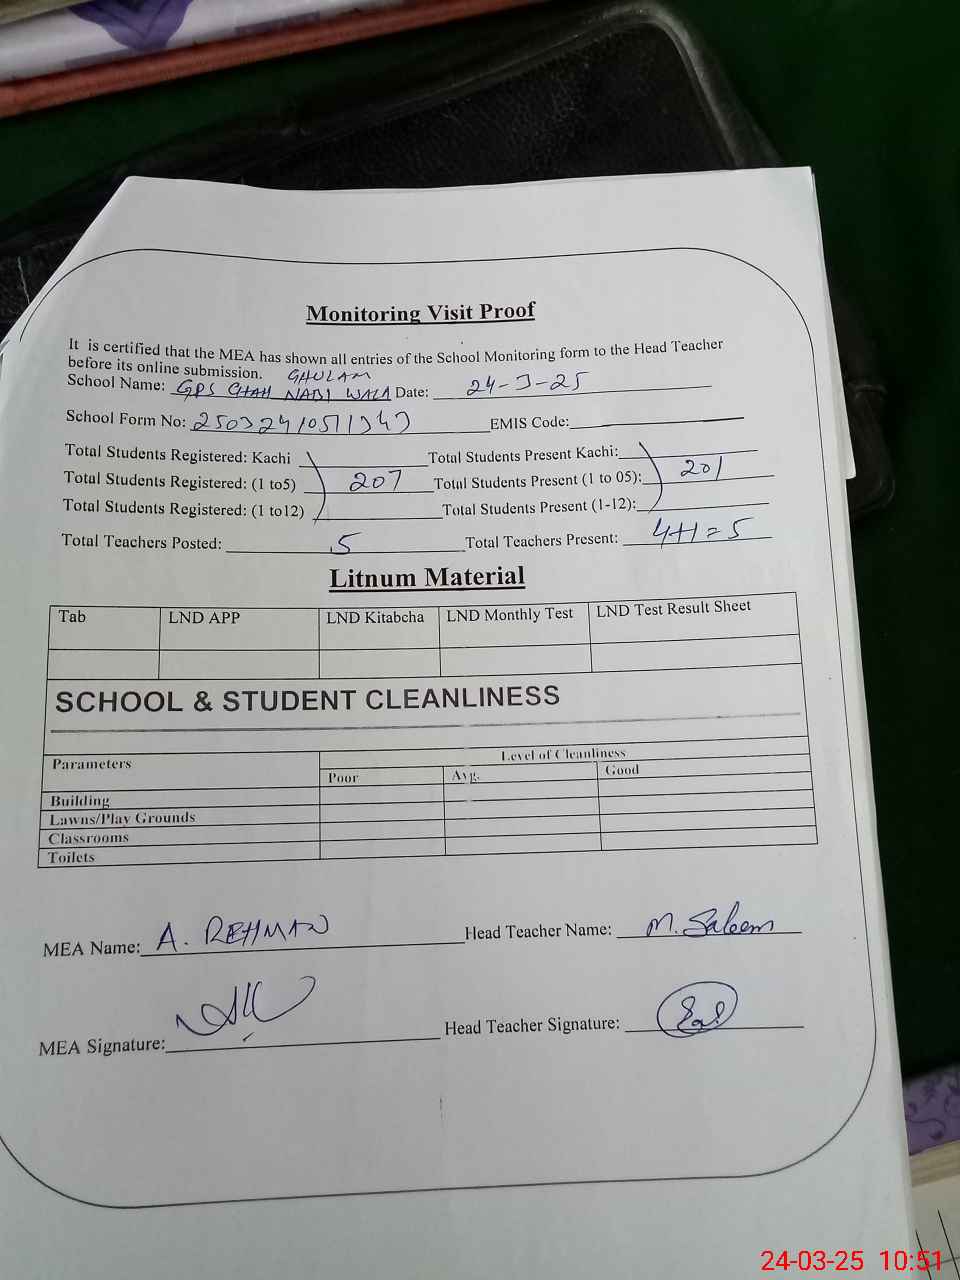 Monitoring Visit Proof
It is certified that the MEA has shown all entries of the School Monitoring form to the Head Teacher
before its online submission.
GHULAM
School Name: GPS CHAH NABI WALA Date: 24-3-25
School Form No: 2503241051 EMIS Code:
Total Students Registered: Kachi Total Students Present Kachi:
Total Students Registered: (1 to5) 207 Total Students Present (1 to 05): 201
Total Students Registered: (1 to12) Total Students Present (1-12):
Total Teachers Posted: 5 Total Teachers Present: 4+1=5
Litnum Material
Tab LND APP LND Kitabcha LND Monthly Test LND Test Result Sheet
SCHOOL & STUDENT CLEANLINESS
Parameters Level of Cleanliness
Poor Avg. Good
Building
Lawns/Play Grounds
Classrooms
Toilets
MEA Name: A. REHMAN Head Teacher Name: M. Saleem
MEA Signature: Head Teacher Signature:
24-03-25 10:51